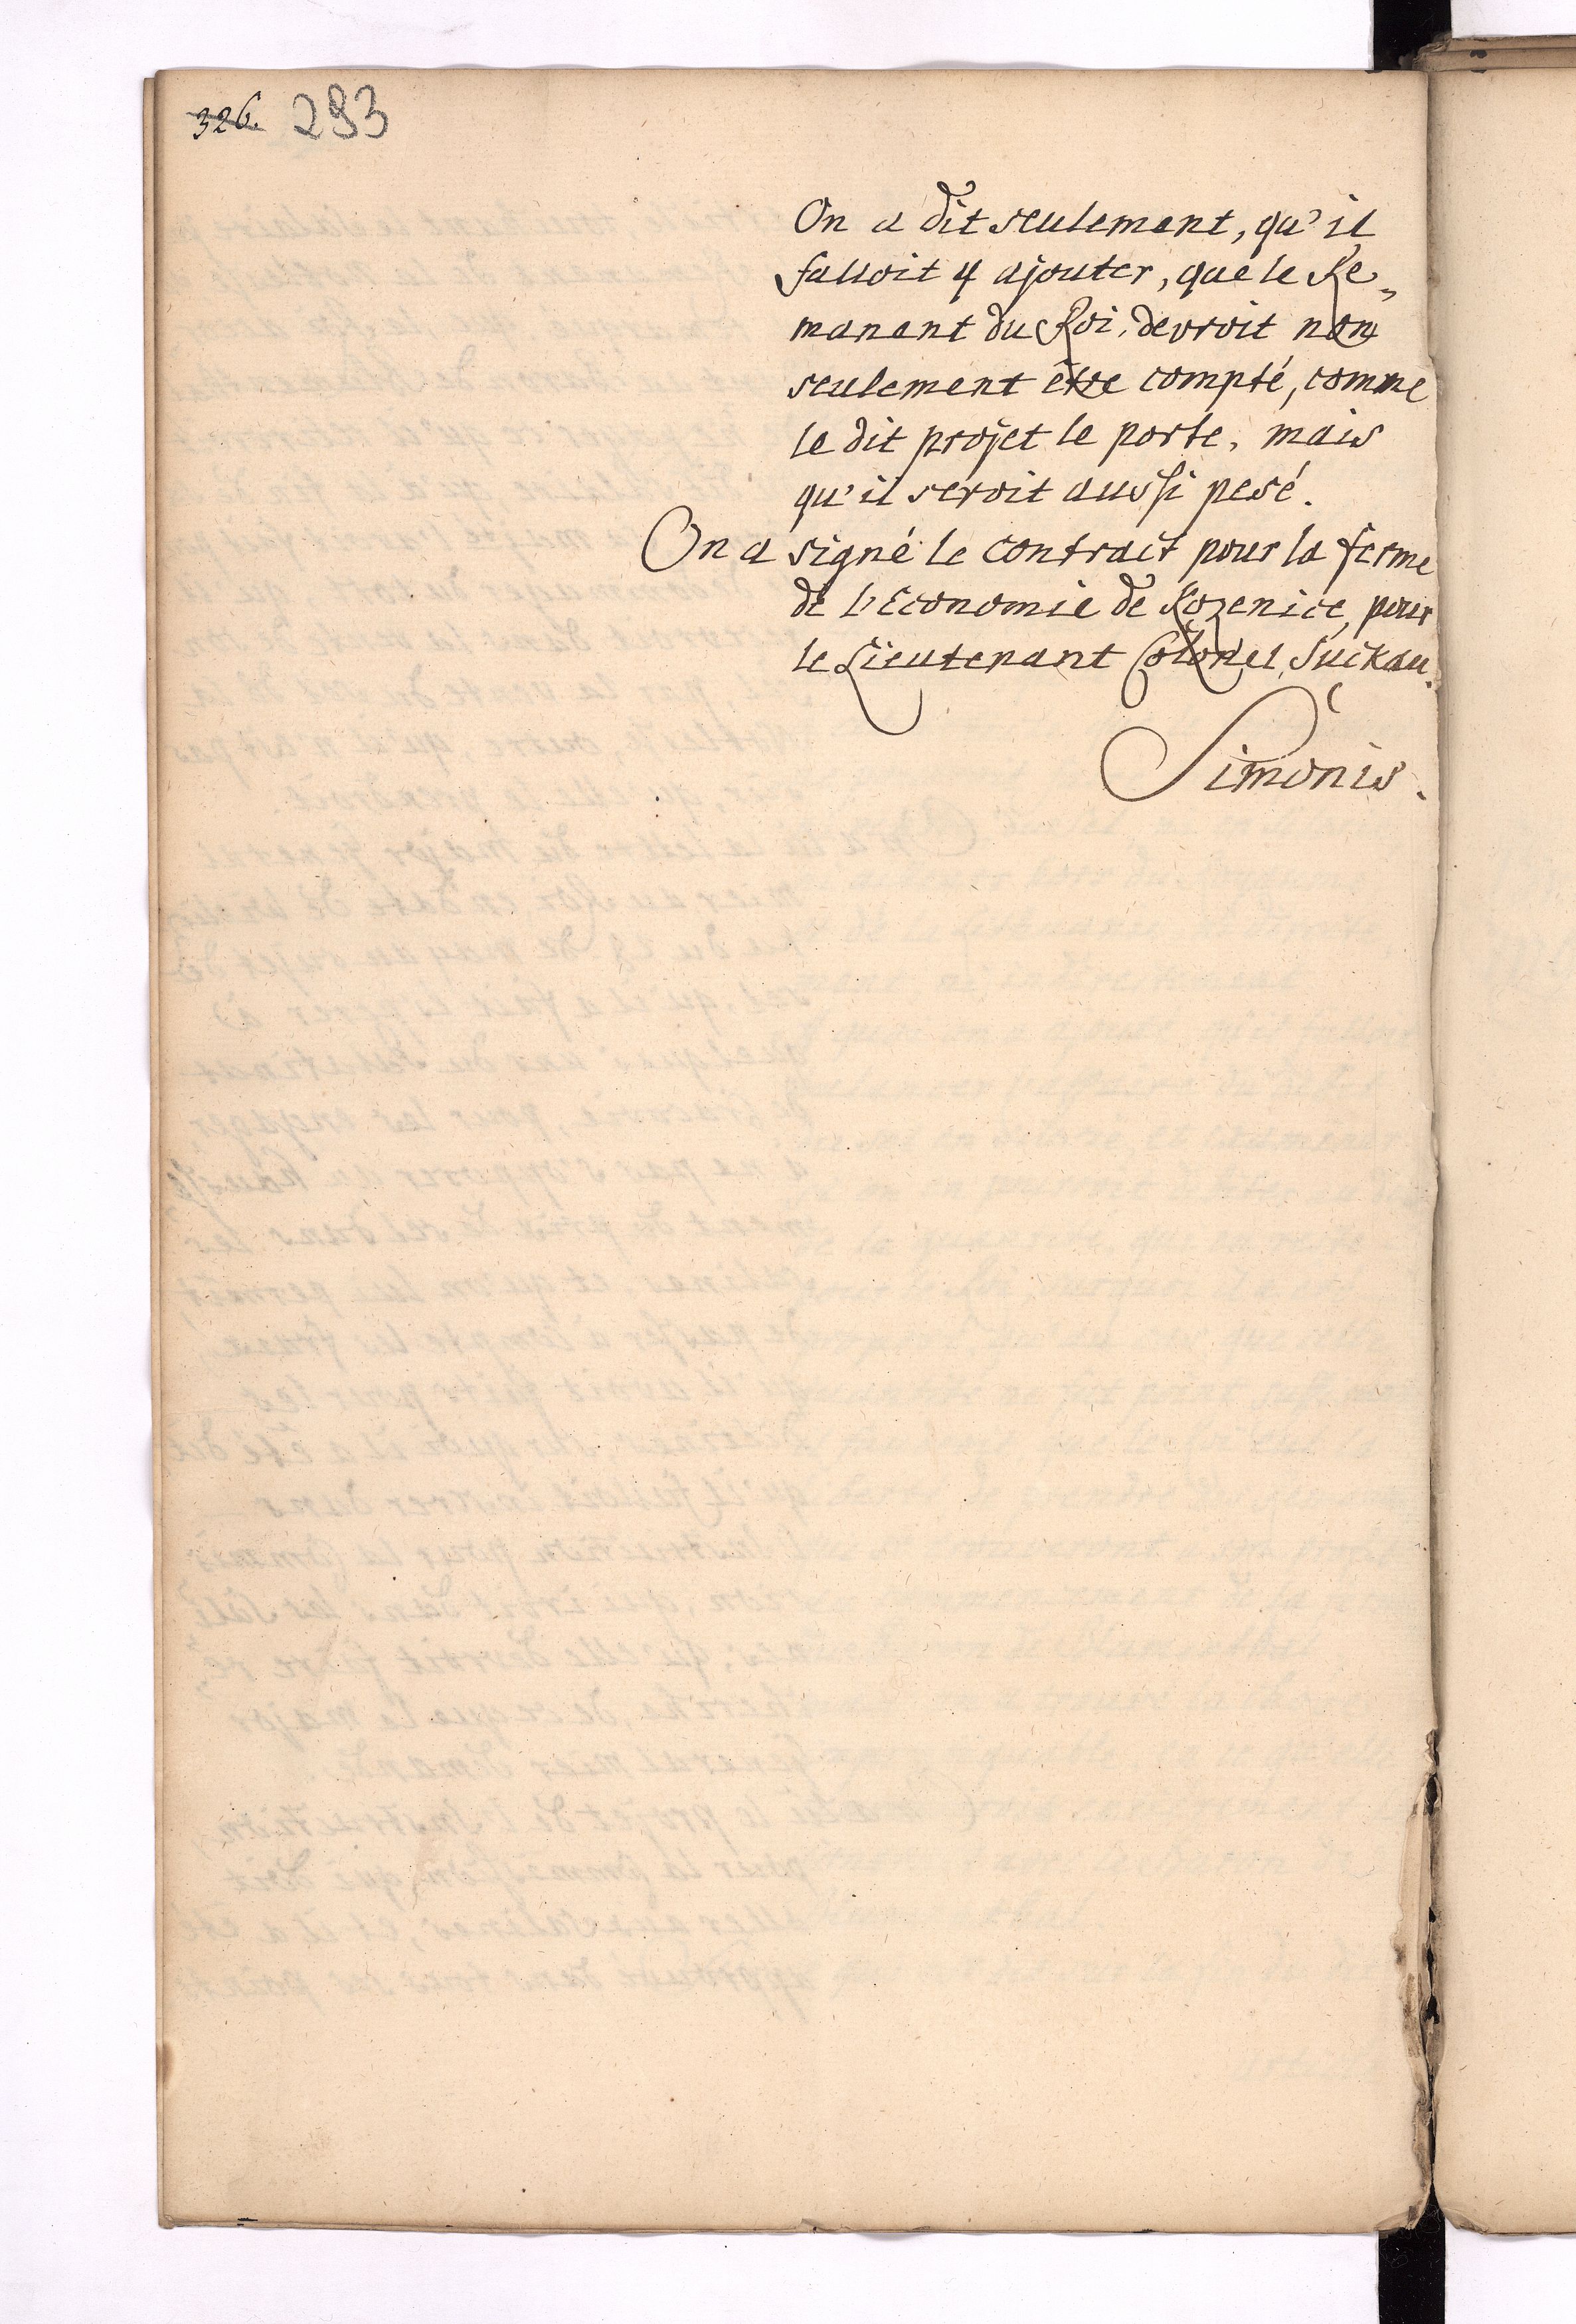 326. 293
On a dit seulement, qu'il
falloit y ajouter, que le Re„
manent du Roi, devroit non
seulement être compté, comme
le dit projet le porte, mais
qu'il seroit aussi pesé.
On a signé le contract pour la ferme
de l'Economie de Kozenice, pour
le Lieutenant Colonel Suckau.
Simonis.